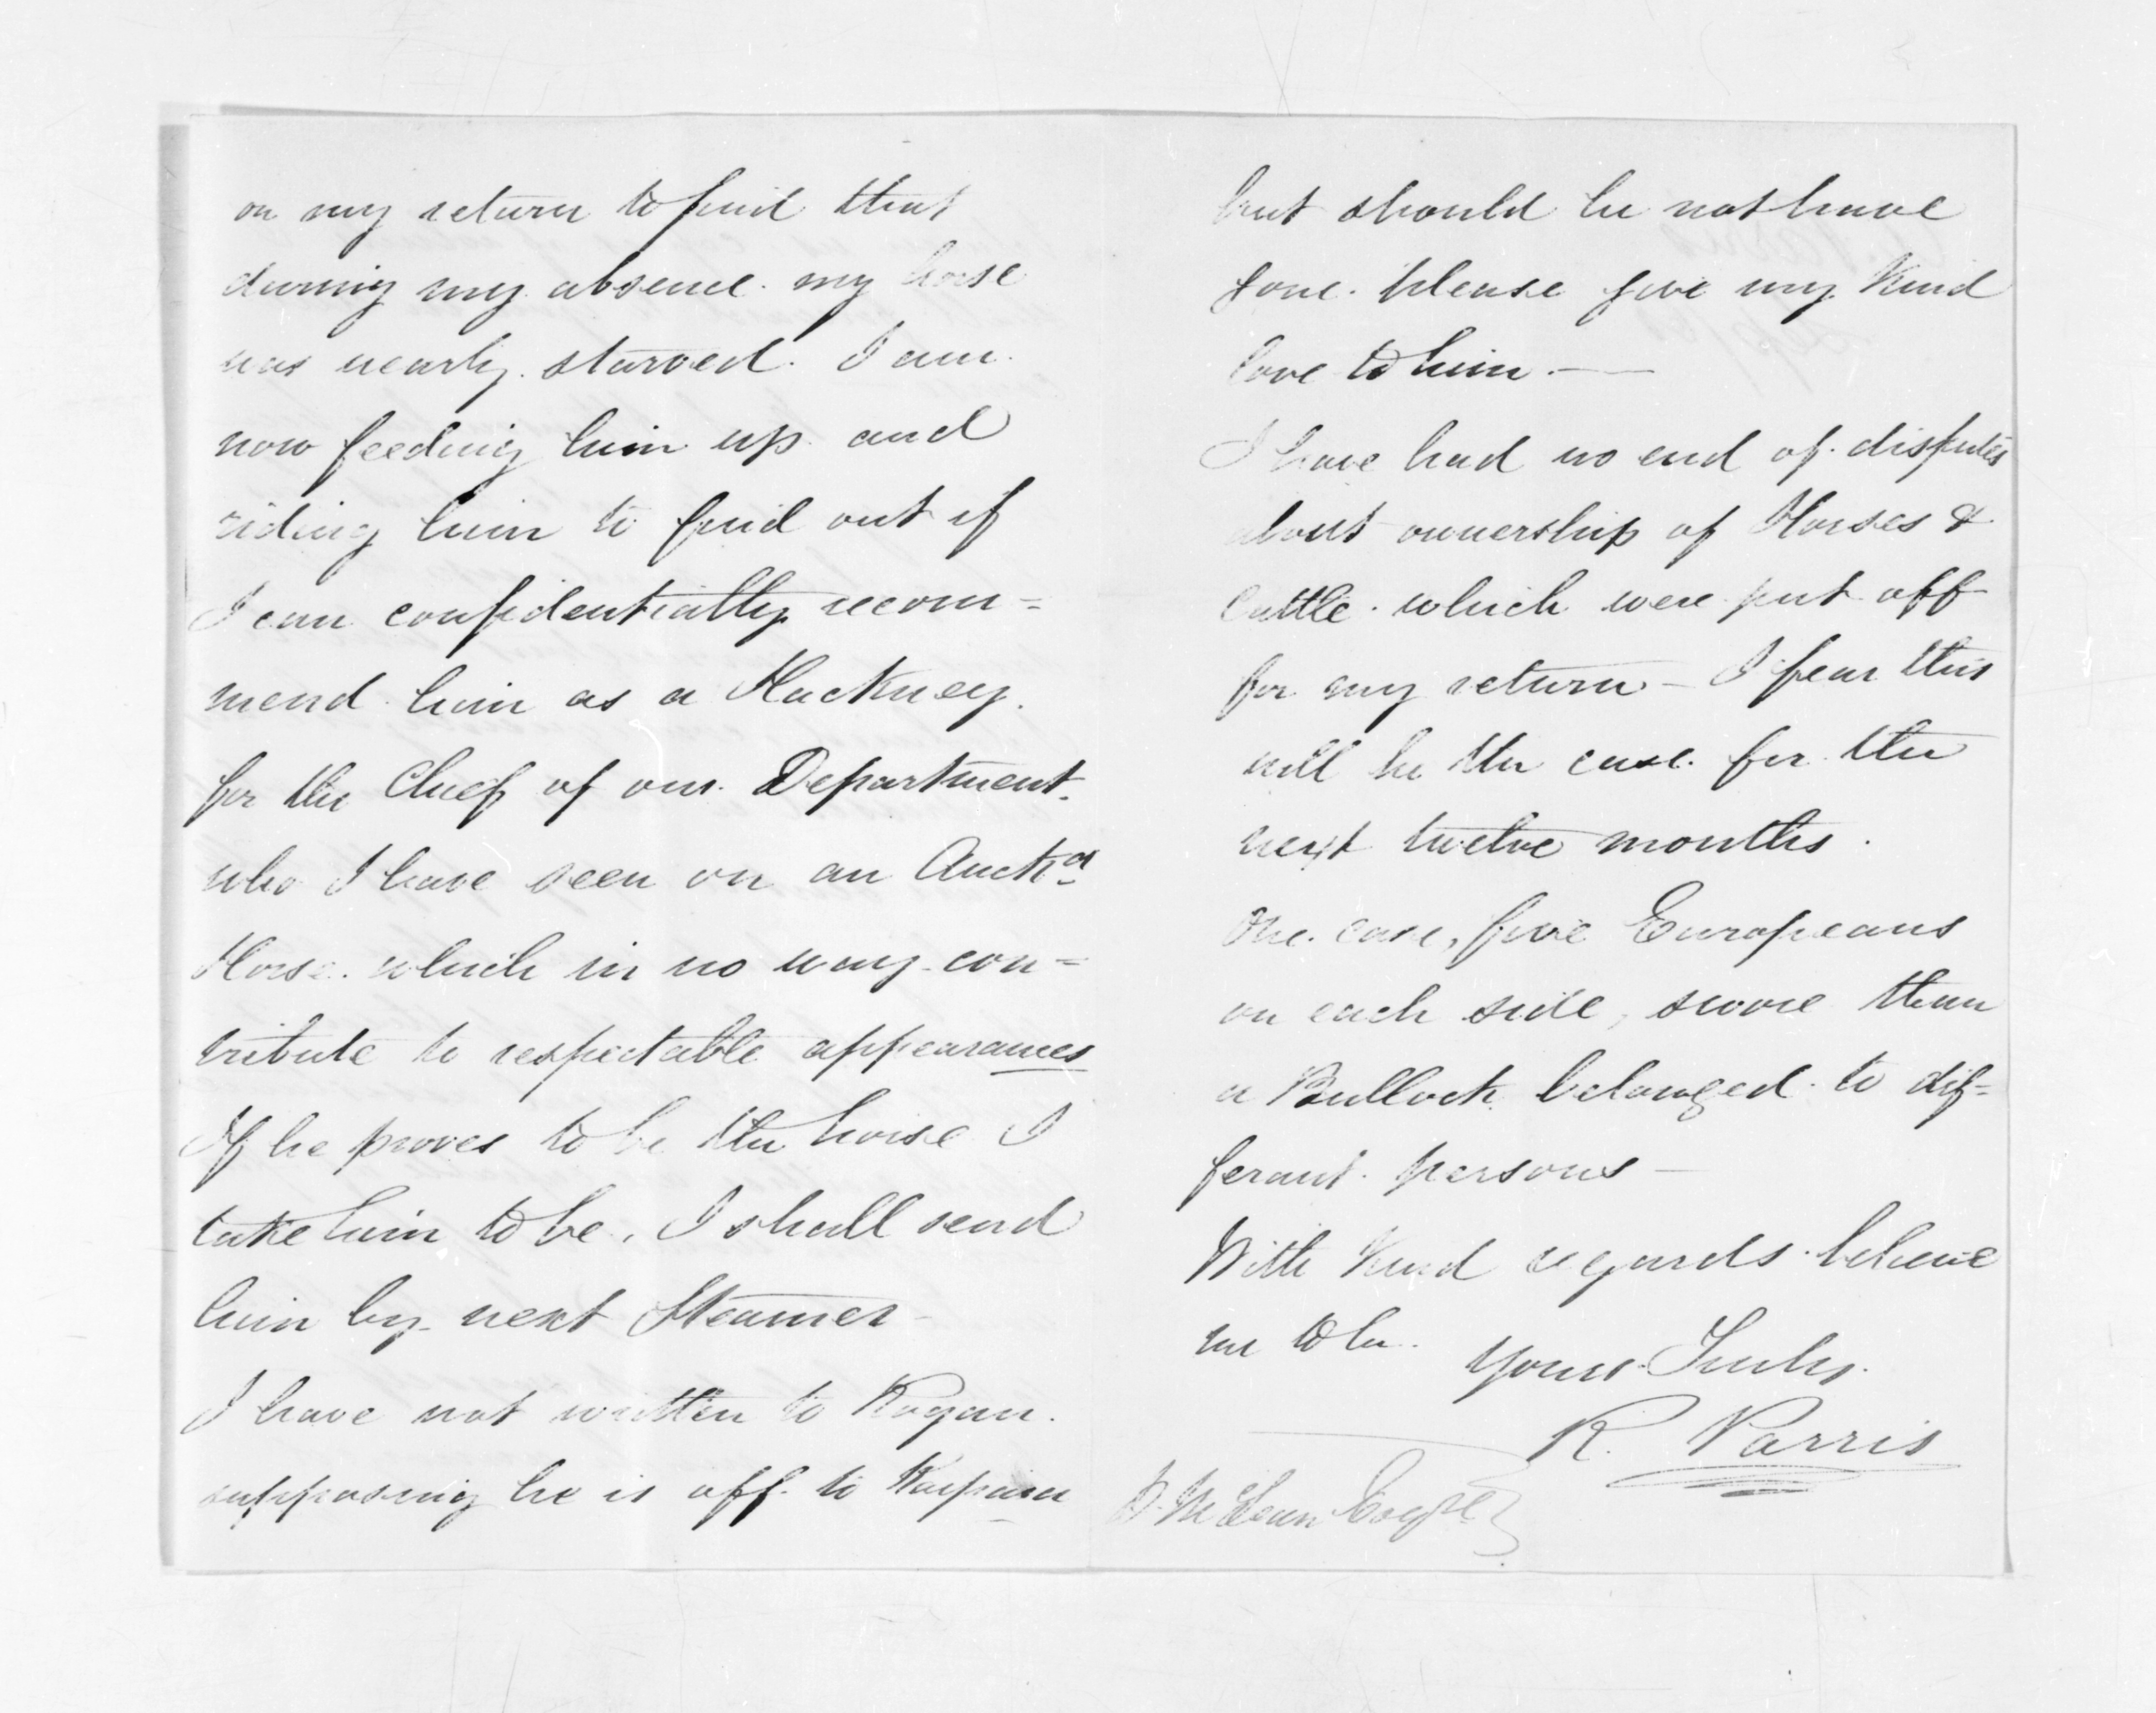 on my return to find that
during my absence. my horse
was nearly. starved. I am.
now feeding him up. and
riding him to find out if
I can confidentially recom=
mend him as a Hackney.
for the Chief of our. Department.
who I have seen on an Auckd
Horse. which in no way con=
tribute to respectable appearances
If he proves to be the horse I
take him to be, I shall send
him by next Steamer -
I have not written to Rogan.
supposing he is off. to Kaipara
but should he not have
gone. please give my kind
love to him. —
I have had no end of. disputes
about ownership of Horses &
Cattle. which were put off
for my return - I fear this
will be the case. for the
next twelve months.
One. case, five Europeans
on each side, swore then
a Bullock belonged. to dif=
ferant. persons -
With kind regards. believe
me to be. Yours Truly.
R. Parris
D. McLean Esqre